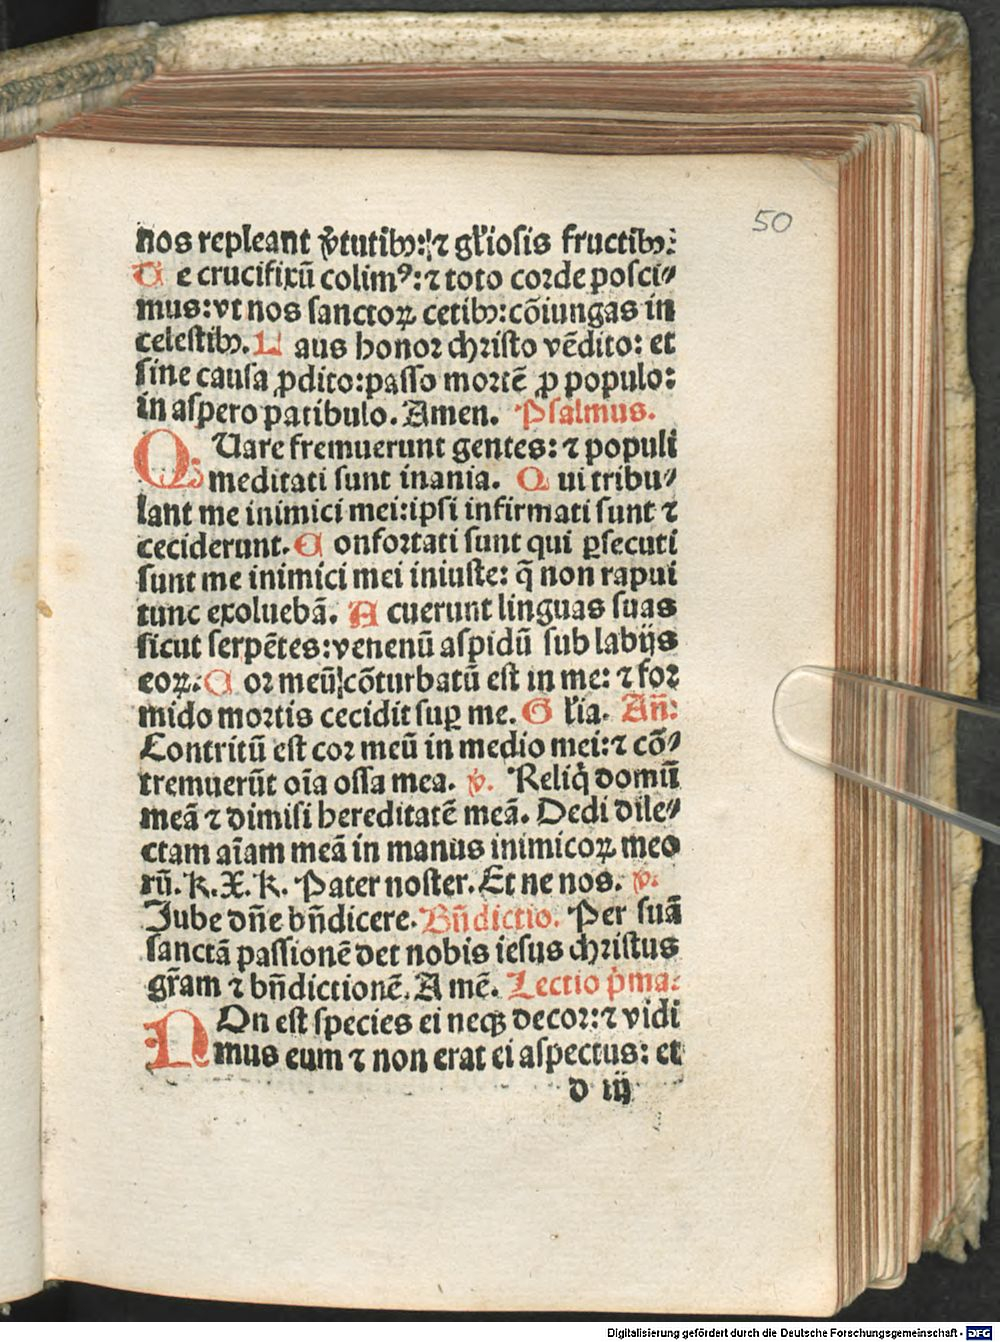 50
nos repleant v̾tutibꝫ: ⁊ gl̓iosis fructibꝫ:
T e crucifixū colimꝰ: ⁊ toto corde posci⸗
mus: vt nos sanctoꝝ cetibꝫ: cōiungas in
celestibꝫ. L aus honor christo vēdito: et
sine causa ꝓdito: passo mortē ꝓ populo:
in aspero patibulo. Amen. Psalmus.
QUare fremuerunt gentes: ⁊ populi
meditati sunt inania. Q ui tribu⸗
lant me inimici mei: ipsi infirmati sunt ⁊
ceciderunt. C onfortati sunt qui ꝑsecuti
sunt me inimici mei iniuste: q̄ non rapui
tunc exoluebā. A cuerunt linguas suas
sicut serpētes: venenū aspidū sub labijs
eoꝝ. C or meū cōturbatū est in me: ⁊ for
mido mortis cecidit suꝑ me. G l̓ia. Añ:
Contritū est cor meū in medio mei: ⁊ cō⸗
tremuerūt oīa ossa mea. ℣. Reliq̇ domū
meā ⁊ dimisi hereditatē meā. Dedi dile⸗
ctam aīam meā in manus inimicoꝝ meo
rū. k. X. k. Pater noster. Et ne nos. ℣.
Jube dn̄e bn̄dicere. Bn̄dictio. Per suā
sanctā passionē det nobis iesus christus
gr̄am ⁊ bn̄dictionē. A mē. Lectio p̓ma:
NOn est species ei neqꝫ decor: ⁊ vidi
mus eum ⁊ non erat ei aspectus: et
d iij
Digitalisierung gefördert durch die Deutsche Forschungsgemeinschaft - DFG